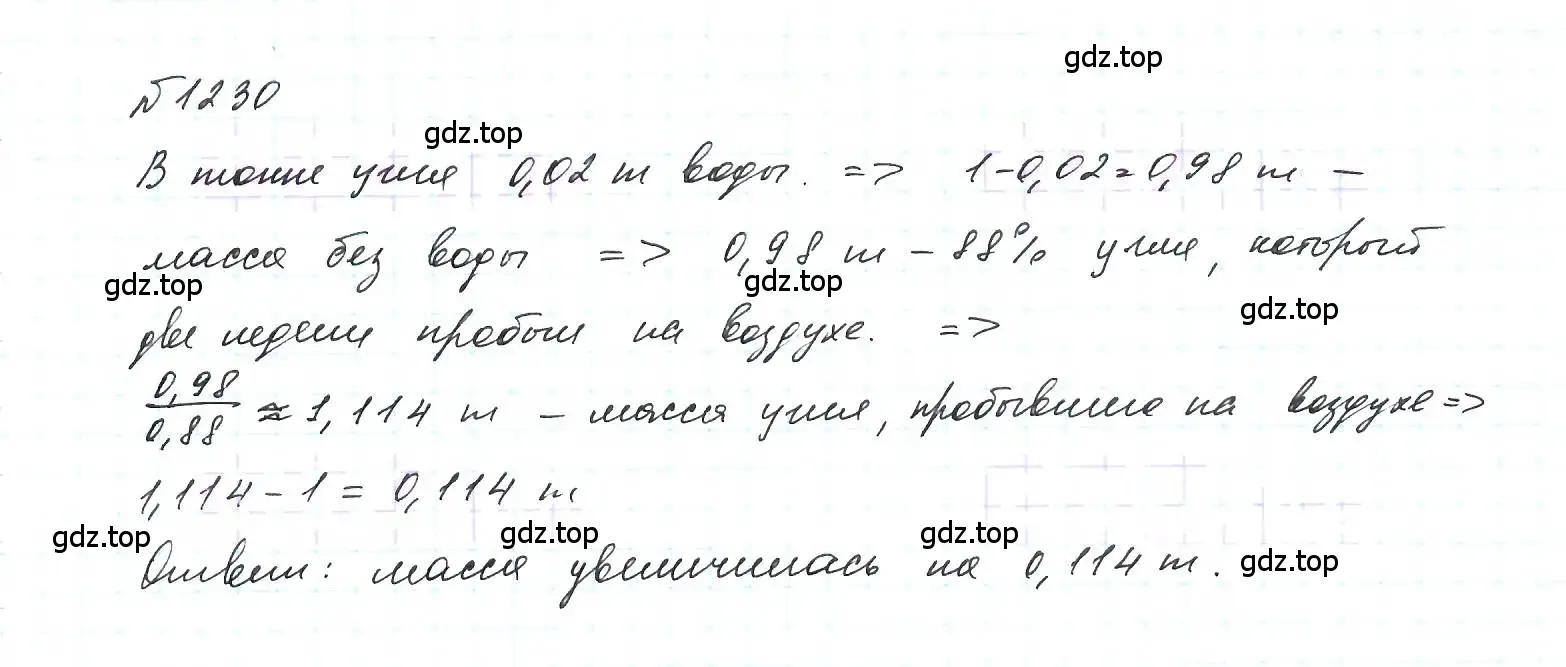 gdz.top
№1230
gdz.top
В тонне угля 0,02 т воды. => 1-0,02=0,98 т -
масса без воды => 0,98 т - 88% угля, который
gdz.top gdz.top gdz.top
две недели пробыл на воздухе. =>
0,98/0,88 ≈ 1,114 т - масса угля, пробывшего на воздухе =>
1,114 - 1 = 0,114 т
gdz.top gdz.top gdz.top gdz.top
Ответ: масса увеличилась на 0,114 т.